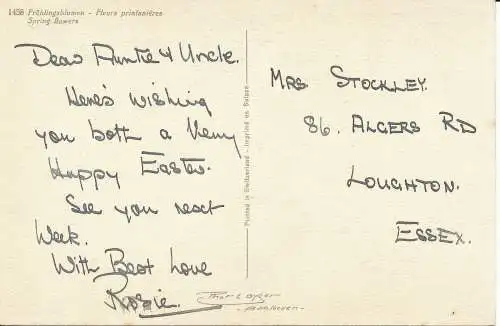 1458 Frühlingsblumen - Fleurs printanières
Spring flowers
Dear Auntie & Uncle.
Here's wishing
you both a Very
Happy Easter.
See you next
Week.
With Best Love
Rosie.
Printed in Switzerland - Imprimé en Suisse
Mrs Stockley.
86. Algers Rd
Loughton.
Essex.